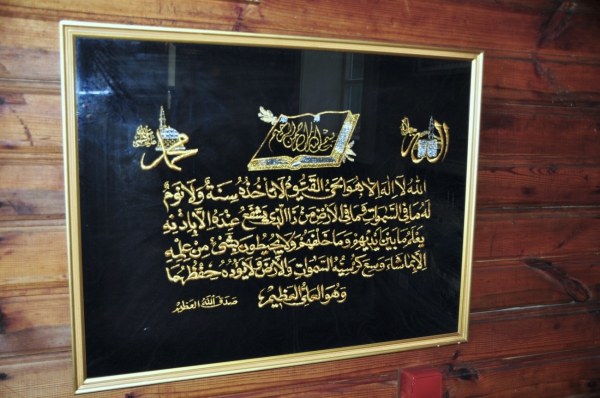 الله جل جلاله
بسم الله الرحمن الرحيم
محمد
الله لا اله الا هو الحي القيوم لا تأخذه سنة ولا نوم
له ما في السموات وما في الارض من ذا الذي يشفع عنده الا باذنه
يعلم ما بين ايديهم وما خلفهم ولا يحيطون بشيء من علمه
الا بما شاء وسع كرسيه السموات والارض ولا يؤده حفظهما
وهو العلي العظيم
صدق الله العظيم